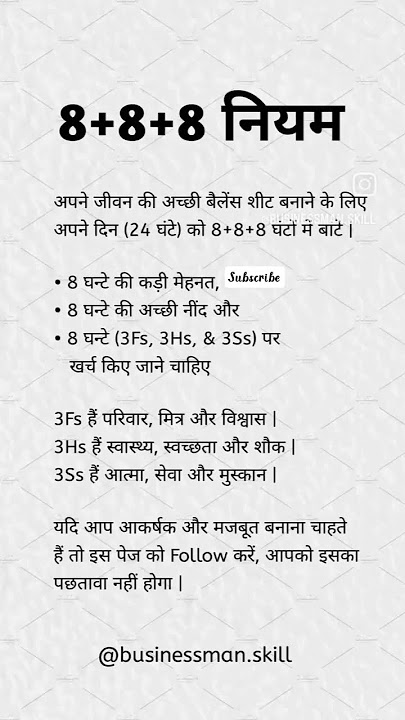 8+8+8 नियम
अपने जीवन की अच्छी बैलेंस शीट बनाने के लिए
BUSINESSMAN.SKILL
अपने दिन (24 घंटे) को 8+8+8 घंटों में बाटें |
• 8 घन्टे की कड़ी मेहनत,
Subscribe
• 8 घन्टे की अच्छी नींद और
• 8 घन्टे (3Fs, 3Hs, & 3Ss) पर
खर्च किए जाने चाहिए
3Fs हैं परिवार, मित्र और विश्वास |
3Hs हैं स्वास्थ्य, स्वच्छता और शौक |
3Ss हैं आत्मा, सेवा और मुस्कान |
यदि आप आकर्षक और मजबूत बनाना चाहते
हैं तो इस पेज को Follow करें, आपको इसका
पछतावा नहीं होगा |
@businessman.skill